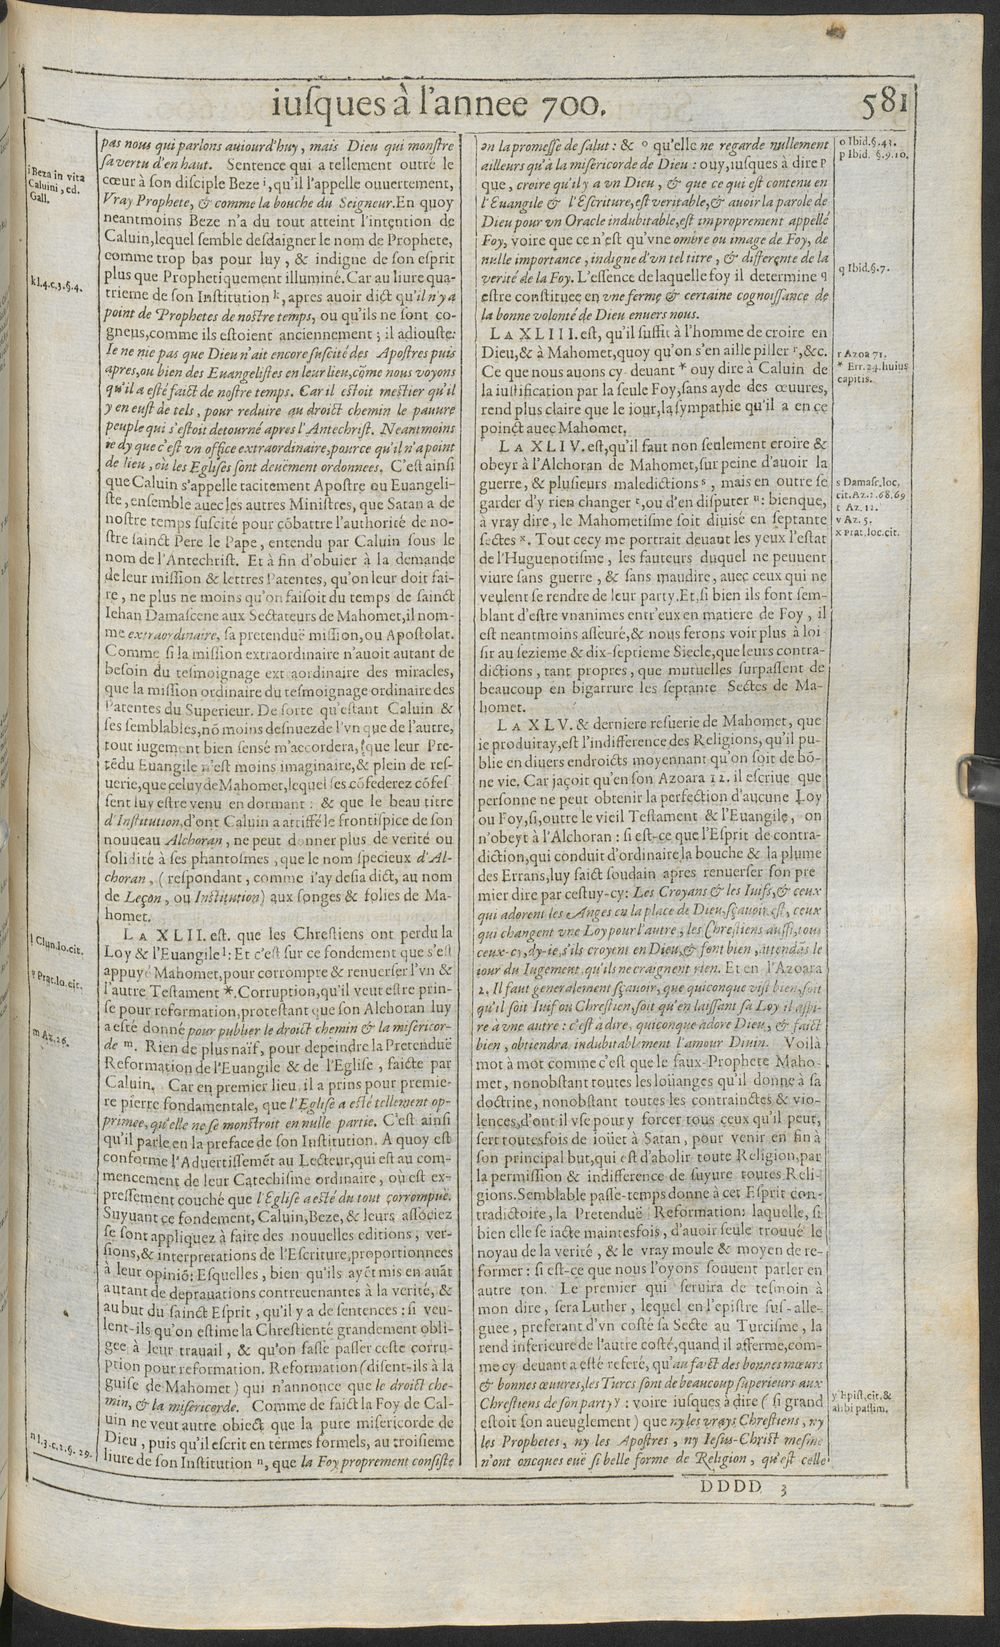 iuſques à l'annee 700. 581
pas nous qui parlons auiourd'huy, mais Dieu qui monſtre
ſa vertu d'en haut. Sentence qui a tellement outré le
cœur à ſon diſciple Beze i, qu'il l'appelle ouuertement,
Vray Prophete, & comme la bouche du Seigneur. En quoy
neantmoins Beze n'a du tout atteint l'intention de
Caluin, lequel ſemble deſdaigner le nom de Prophete,
comme trop bas pour luy, & indigne de ſon eſprit
plus que Prophetiquement illuminé. Car au liure qua-
trieme de ſon Inſtitution k, apres auoir dict qu'il n'y a
point de Prophetes de noſtre temps, ou qu'ils ne ſont co-
gneus, comme ils eſtoient anciennement ; il adiouſte:
Ie ne nie pas que Dieu n'ait encore ſuſcité des Apoſtres puis
apres, ou bien des Euangeliſtes en leur lieu, cōme nous voyons
qu'il a eſté faict de noſtre temps. Car il eſtoit meſtier qu'il
y en euſt de tels, pour reduire au droict chemin le pauure
peuple qui s'eſtoit detourné apres l'Antechriſt. Neantmoins
ie dy que c'eſt vn office extraordinaire, pource qu'il n'a point
de lieu, où les Egliſes ſont deuëment ordonnees. C'eſt ainſi
que Caluin s'appelle tacitement Apoſtre ou Euangeli-
ſte, enſemble auec les autres Miniſtres, que Satan a de
noſtre temps ſuſcité pour cōbattre l'authorité de no-
ſtre ſainct Pere le Pape, entendu par Caluin ſous le
nom de l'Antechriſt. Et à fin d'obuier à la demande
de leur miſſion & lettres Patentes, qu'on leur doit fai-
re, ne plus ne moins qu'on faiſoit du temps de ſainct
Iehan Damaſcene aux Sectateurs de Mahomet, il nom-
me extraordinaire, ſa pretenduë miſſion, ou Apoſtolat.
Comme ſi la miſſion extraordinaire n'auoit autant de
beſoin du teſmoignage extraordinaire des miracles,
que la miſſion ordinaire du teſmoignage ordinaire des
Patentes du Superieur. De ſorte qu'eſtant Caluin &
ſes ſemblables, nō moins deſnuez de l'vn que de l'autre,
tout iugement bien ſensé m'accordera, que leur Pre-
tēdu Euangile n'eſt moins imaginaire, & plein de reſ-
uerie, que celuy de Mahomet, lequel ſes cōfederez cōfeſ-
ſent luy eſtre venu en dormant : & que le beau titre
d'Inſtitution, d'ont Caluin a attiffé le frontiſpice de ſon
nouueau Alchoran, ne peut donner plus de verité ou
ſolidité à ſes phantoſmes, que le nom ſpecieux d'Al-
choran, (reſpondant, comme i'ay deſia dict, au nom
de Leçon, ou Inſtitution) aux ſonges & folies de Ma-
homet.
LA XLII. eſt. que les Chreſtiens ont perdu la
Loy & l'Euangile l: Et c'eſt ſur ce fondement que s'eſt
appuyé Mahomet, pour corrompre & renuerſer l'vn &
l'autre Teſtament *. Corruption, qu'il veut eſtre prin-
ſe pour reformation, proteſtant que ſon Alchoran luy
a eſté donné pour publier le droict chemin & la miſericor-
de m. Rien de plus naïf, pour depeindre la Pretenduë
Reformation de l'Euangile & de l'Egliſe, faicte par
Caluin. Car en premier lieu, il a prins pour premie-
re pierre fondamentale, que l'Egliſe a eſté tellement op-
primee, qu'elle ne ſe monſtroit en nulle partie. C'eſt ainſi
qu'il parle en la preface de ſon Inſtitution. A quoy eſt
conforme l'Aduertiſſemēt au Lecteur, qui eſt au com-
mencement de leur Catechiſme ordinaire, où eſt ex-
preſſement couché que l'Egliſe a eſté du tout corrompuë.
Suyuant ce fondement, Caluin, Beze, & leurs aſſociez
ſe ſont appliquez à faire des nouuelles editions, ver-
ſions, & interpretations de l'Eſcriture, proportionnees
à leur opiniō: Eſquelles, bien qu'ils ayēt mis en auāt
autant de deprauations contreuenantes à la verité, &
au but du ſainct Eſprit, qu'il y a de ſentences : ſi veu-
lent-ils qu'on eſtime la Chreſtienté grandement obli-
gee à leur trauail, & qu'on faſſe paſſer ceſte corru-
ption pour reformation. Reformation (diſent-ils à la
guiſe de Mahomet) qui n'annonce que le droict che-
min, & la miſericorde. Comme de faict la Foy de Cal-
uin ne veut autre obiect que la pure miſericorde de
Dieu, puis qu'il eſcrit en termes formels, au troiſieme
liure de ſon Inſtitution n, que la Foy proprement conſiſte
i Beza in vita
Caluini, ed.
Gall.
k l.4.c.3.§.4.
l Clun.lo.cit.
* Prat.lo.cit.
m Az.26.
n l.3.c.2.§.29.
en la promeſſe de ſalut : & o qu'elle ne regarde nullement
ailleurs qu'à la miſericorde de Dieu : ouy, iuſques à dire p
que, croire qu'il y a vn Dieu, & que ce qui eſt contenu en
l'Euangile & l'Eſcriture, eſt veritable, & auoir la parole de
Dieu pour vn Oracle indubitable, eſt improprement appellé
Foy, voire que ce n'eſt qu'vne ombre ou image de Foy, de
nulle importance, indigne d'vn tel titre, & differente de la
verité de la Foy. L'eſſence de laquelle foy il determine q
eſtre conſtituee en vne ferme & certaine cognoiſſance de
la bonne volonté de Dieu enuers nous.
LA XLIII. eſt, qu'il ſuffit à l'homme de croire en
Dieu, & à Mahomet, quoy qu'on s'en aille piller r, &c.
Ce que nous auons cy-deuant * ouy dire à Caluin de
la iuſtification par la ſeule Foy, ſans ayde des œuures,
rend plus claire que le iour, la ſympathie qu'il a en ce
poinct auec Mahomet.
LA XLIV. eſt, qu'il faut non ſeulement croire &
obeyr à l'Alchoran de Mahomet, ſur peine d'auoir la
guerre, & pluſieurs maledictions s, mais en outre ſe
garder d'y rien changer t, ou d'en diſputer u: bienque,
à vray dire, le Mahometiſme ſoit diuisé en ſeptante
ſectes x. Tout cecy me portrait deuant les yeux l'eſtat
de l'Huguenotiſme, les fauteurs duquel ne peuuent
viure ſans guerre, & ſans maudire, auec ceux qui ne
veulent ſe rendre de leur party. Et, ſi bien ils font ſem-
blant d'eſtre vnanimes entr'eux en matiere de Foy, il
eſt neantmoins aſſeuré, & nous ferons voir plus à loi-
ſir au ſezieme & dix-ſeptieme Siecle, que leurs contra-
dictions, tant propres, que mutuelles ſurpaſſent de
beaucoup en bigarrure les ſeptante Sectes de Ma-
homet.
LA XLV. & derniere reſuerie de Mahomet, que
ie produiray, eſt l'indifference des Religions, qu'il pu-
blie en diuers endroicts moyennant qu'on ſoit de bō-
ne vie. Car jaçoit qu'en ſon Azoara 12. il eſcriue que
perſonne ne peut obtenir la perfection d'aucune Loy
ou Foy, ſi, outre le vieil Teſtament & l'Euangile, on
n'obeyt à l'Alchoran : ſi eſt-ce que l'Eſprit de contra-
diction, qui conduit d'ordinaire la bouche & la plume
des Errans, luy faict ſoudain apres renuerſer ſon pre-
mier dire par ceſtuy-cy: Les Croyans & les Iuifs, & ceux
qui adorent les Anges en la place de Dieu, ſçauoir eſt, ceux
qui changent vne Loy pour l'autre, les Chreſtiens auſſi, tous
ceux-cy, dy-ie, s'ils croyent en Dieu, & font bien, attendās le
iour du Iugement, qu'ils ne craignent rien. Et en l'Azoara
2. Il faut generalement ſçauoir, que quiconque vit bien, ſoit
qu'il ſoit Iuif ou Chreſtien, ſoit qu'en laiſſant ſa Loy il aſpi-
re à vne autre : c'eſt à dire, quiconque adore Dieu, & faict
bien, obtiendra indubitablement l'amour Diuin. Voilà
mot à mot comme c'eſt que le faux-Prophete Maho-
met, nonobſtant toutes les loüanges qu'il donne à ſa
doctrine, nonobſtant toutes les contrainctes & vio-
lences, d'ont il vſe pour y forcer tous ceux qu'il peut,
ſert toutesfois de ioüet à Satan, pour venir en fin à
ſon principal but, qui eſt d'abolir toute Religion, par
la permiſſion & indifference de ſuyure toutes Reli-
gions. Semblable paſſe-temps donne à cet Eſprit con-
tradictoire, la Pretenduë Reformation: laquelle, ſi
bien elle ſe iacte maintesfois, d'auoir ſeule trouué le
noyau de la verité, & le vray moule & moyen de re-
former : ſi eſt-ce que nous l'oyons ſouuent parler en
autre ton. Le premier qui ſeruira de teſmoin à
mon dire, ſera Luther, lequel en l'epiſtre ſuſ-alle-
guee, preferant d'vn coſté ſa Secte au Turciſme, la
rend inferieure de l'autre coſté, quand il afferme, com-
me cy deuant a eſté referé, qu'au faict des bonnes mœurs
& bonnes œuures, les Turcs ſont de beaucoup ſuperieurs aux
Chreſtiens de ſon party y : voire iuſques à dire (ſi grand
eſtoit ſon aueuglement) que ny les vrays Chreſtiens, ny
les Prophetes, ny les Apoſtres, ny Ieſus-Chriſt meſme
n'ont oncques euë ſi belle forme de Religion, qu'eſt celle
o Ibid.§.43.
p Ibid. §.9.10.
q Ibid.§.7.
r Azoa 71.
* Err.24.huius
capitis.
s Damaſc.loc.
cit.Az.2.68.69
t Az. 12.
v Az. 5.
x Prat.loc.cit.
y Epiſt.cit.&
alibi paſſim.
DDDD 3